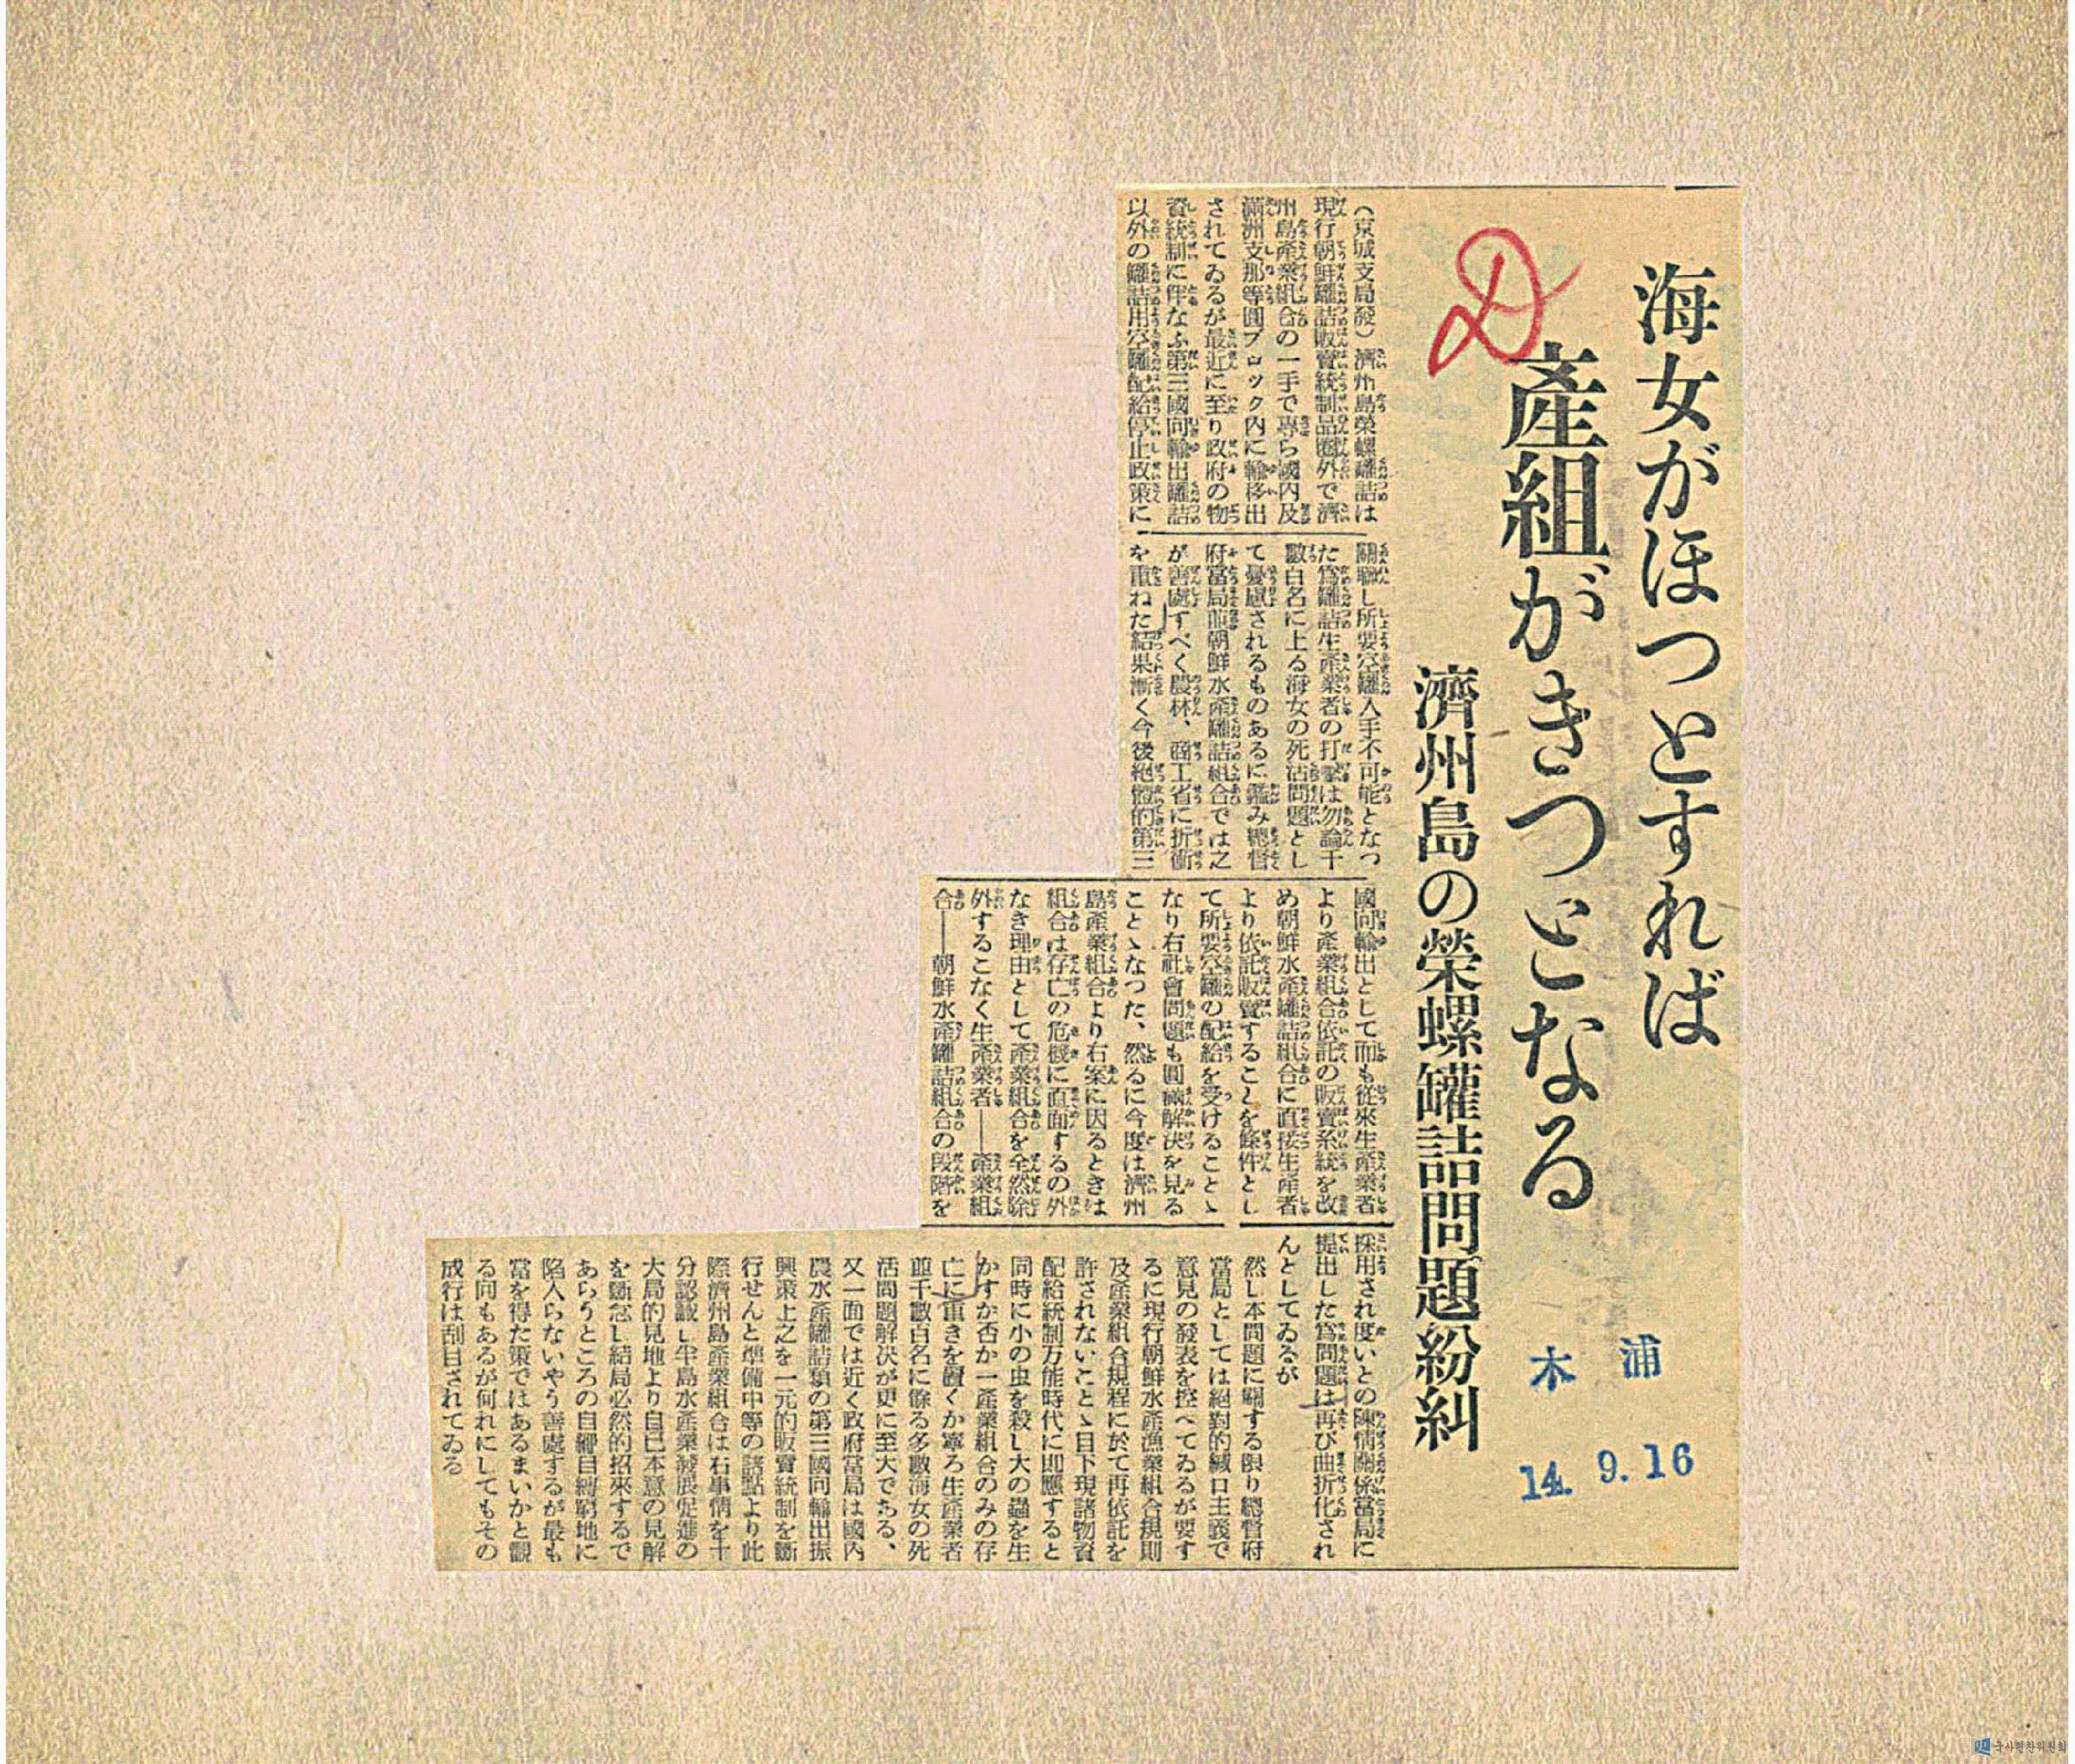 海女がほつとすれば
產組がきつとなる
濟州島の榮螺罐詰問題紛糾
木浦
14. 9.16
（京城支局發）濟州島榮螺罐詰は
現行朝鮮罐詰販賣統制品圈外で濟
州島產業組合の一手で專ら國內及
滿洲支那等圓ブロック內に輸移出
されてゐるが最近に至り政府の物
資統制に伴なふ第三國向輸出罐詰
以外の罐詰用空罐配給停止政策に
關聯し所要空罐入手不可能となつ
た爲罐詰生產業者の打擊は勿論千
數百名に上る海女の死活問題とし
て憂慮されるものあるに鑑み總督
府當局並朝鮮水產罐詰組合では之
が善處すべく農林、商工省に折衝
を重ねた結果漸く今後絕體的第三
國向輸出として而も從來生產業者
より產業組合依託の販賣系統を改
め朝鮮水產罐詰組合に直接生產者
より依託販賣することを條件とし
て所要空罐の配給を受けることゝ
なり右社會問題も圓滿解決を見る
ことゝなつた、然るに今度は濟州
島產業組合より右案に因るときは
組合は存亡の危機に直面するの外
なき理由として產業組合を全然除
外するこなく生產業者――產業組
合――朝鮮水產罐詰組合の段階を
採用され度いとの陳情關係當局に
提出した爲問題は再び曲折化され
んとしてゐるが
然し本問題に關する限り總督府
當局としては絕對的緘口主義で
意見の發表を控へてゐるが要す
るに現行朝鮮水產漁業組合規則
及產業組合規程に於て再依託を
許されないことゝ目下現諸物資
配給統制万能時代に卽應すると
同時に小の虫を殺し大の蟲を生
かすか否か一產業組合のみの存
亡に重きを置くか寧ろ生產業者
並千數百名に餘る多數海女の死
活問題解決が更に至大である、
又一面では近く政府當局は國內
農水產罐詰類の第三國向輸出振
興策上之を一元的販賣統制を斷
行せんと準備中等の諸點より此
際濟州島產業組合は右事情を十
分認識し半島水產業發展促進の
大局的見地より自己本意の見解
を斷念し結局必然的招來するで
あらうところの自繩自縛窮地に
陷入らないやう善處するが最も
當を得た策ではあるまいかと觀
る向もあるが何れにしてもその
成行は刮目されてゐる
국사편찬위원회